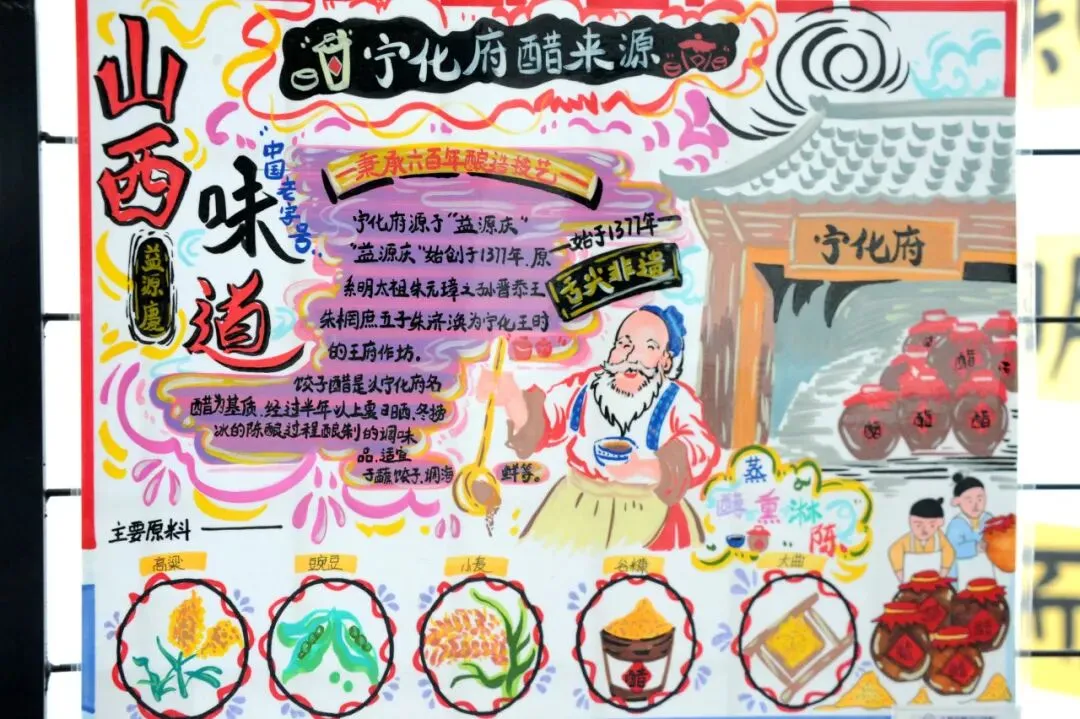 宁化府醋来源
山西
味道
"中国老字号"
益源庆
秉承六百年酿造技艺
宁化府源于"益源庆"
"益源庆"始创于1377年.原
系明太祖朱元璋之孙晋恭王
朱棡庶五子朱济焕为宁化王时
的王府作坊.
始于1377年
舌尖非遗
宁化府
饺子醋是以宁化府名
醋为基质.经过半年以上夏日晒.冬捞
冰的陈酿过程酿制的调味
品.适宜
于蘸饺子.调海
鲜等。
醋
醋
醋
醋
蒸
酵熏淋
陈
主要原料
高粱
豌豆
小麦
谷糠
大曲
醋